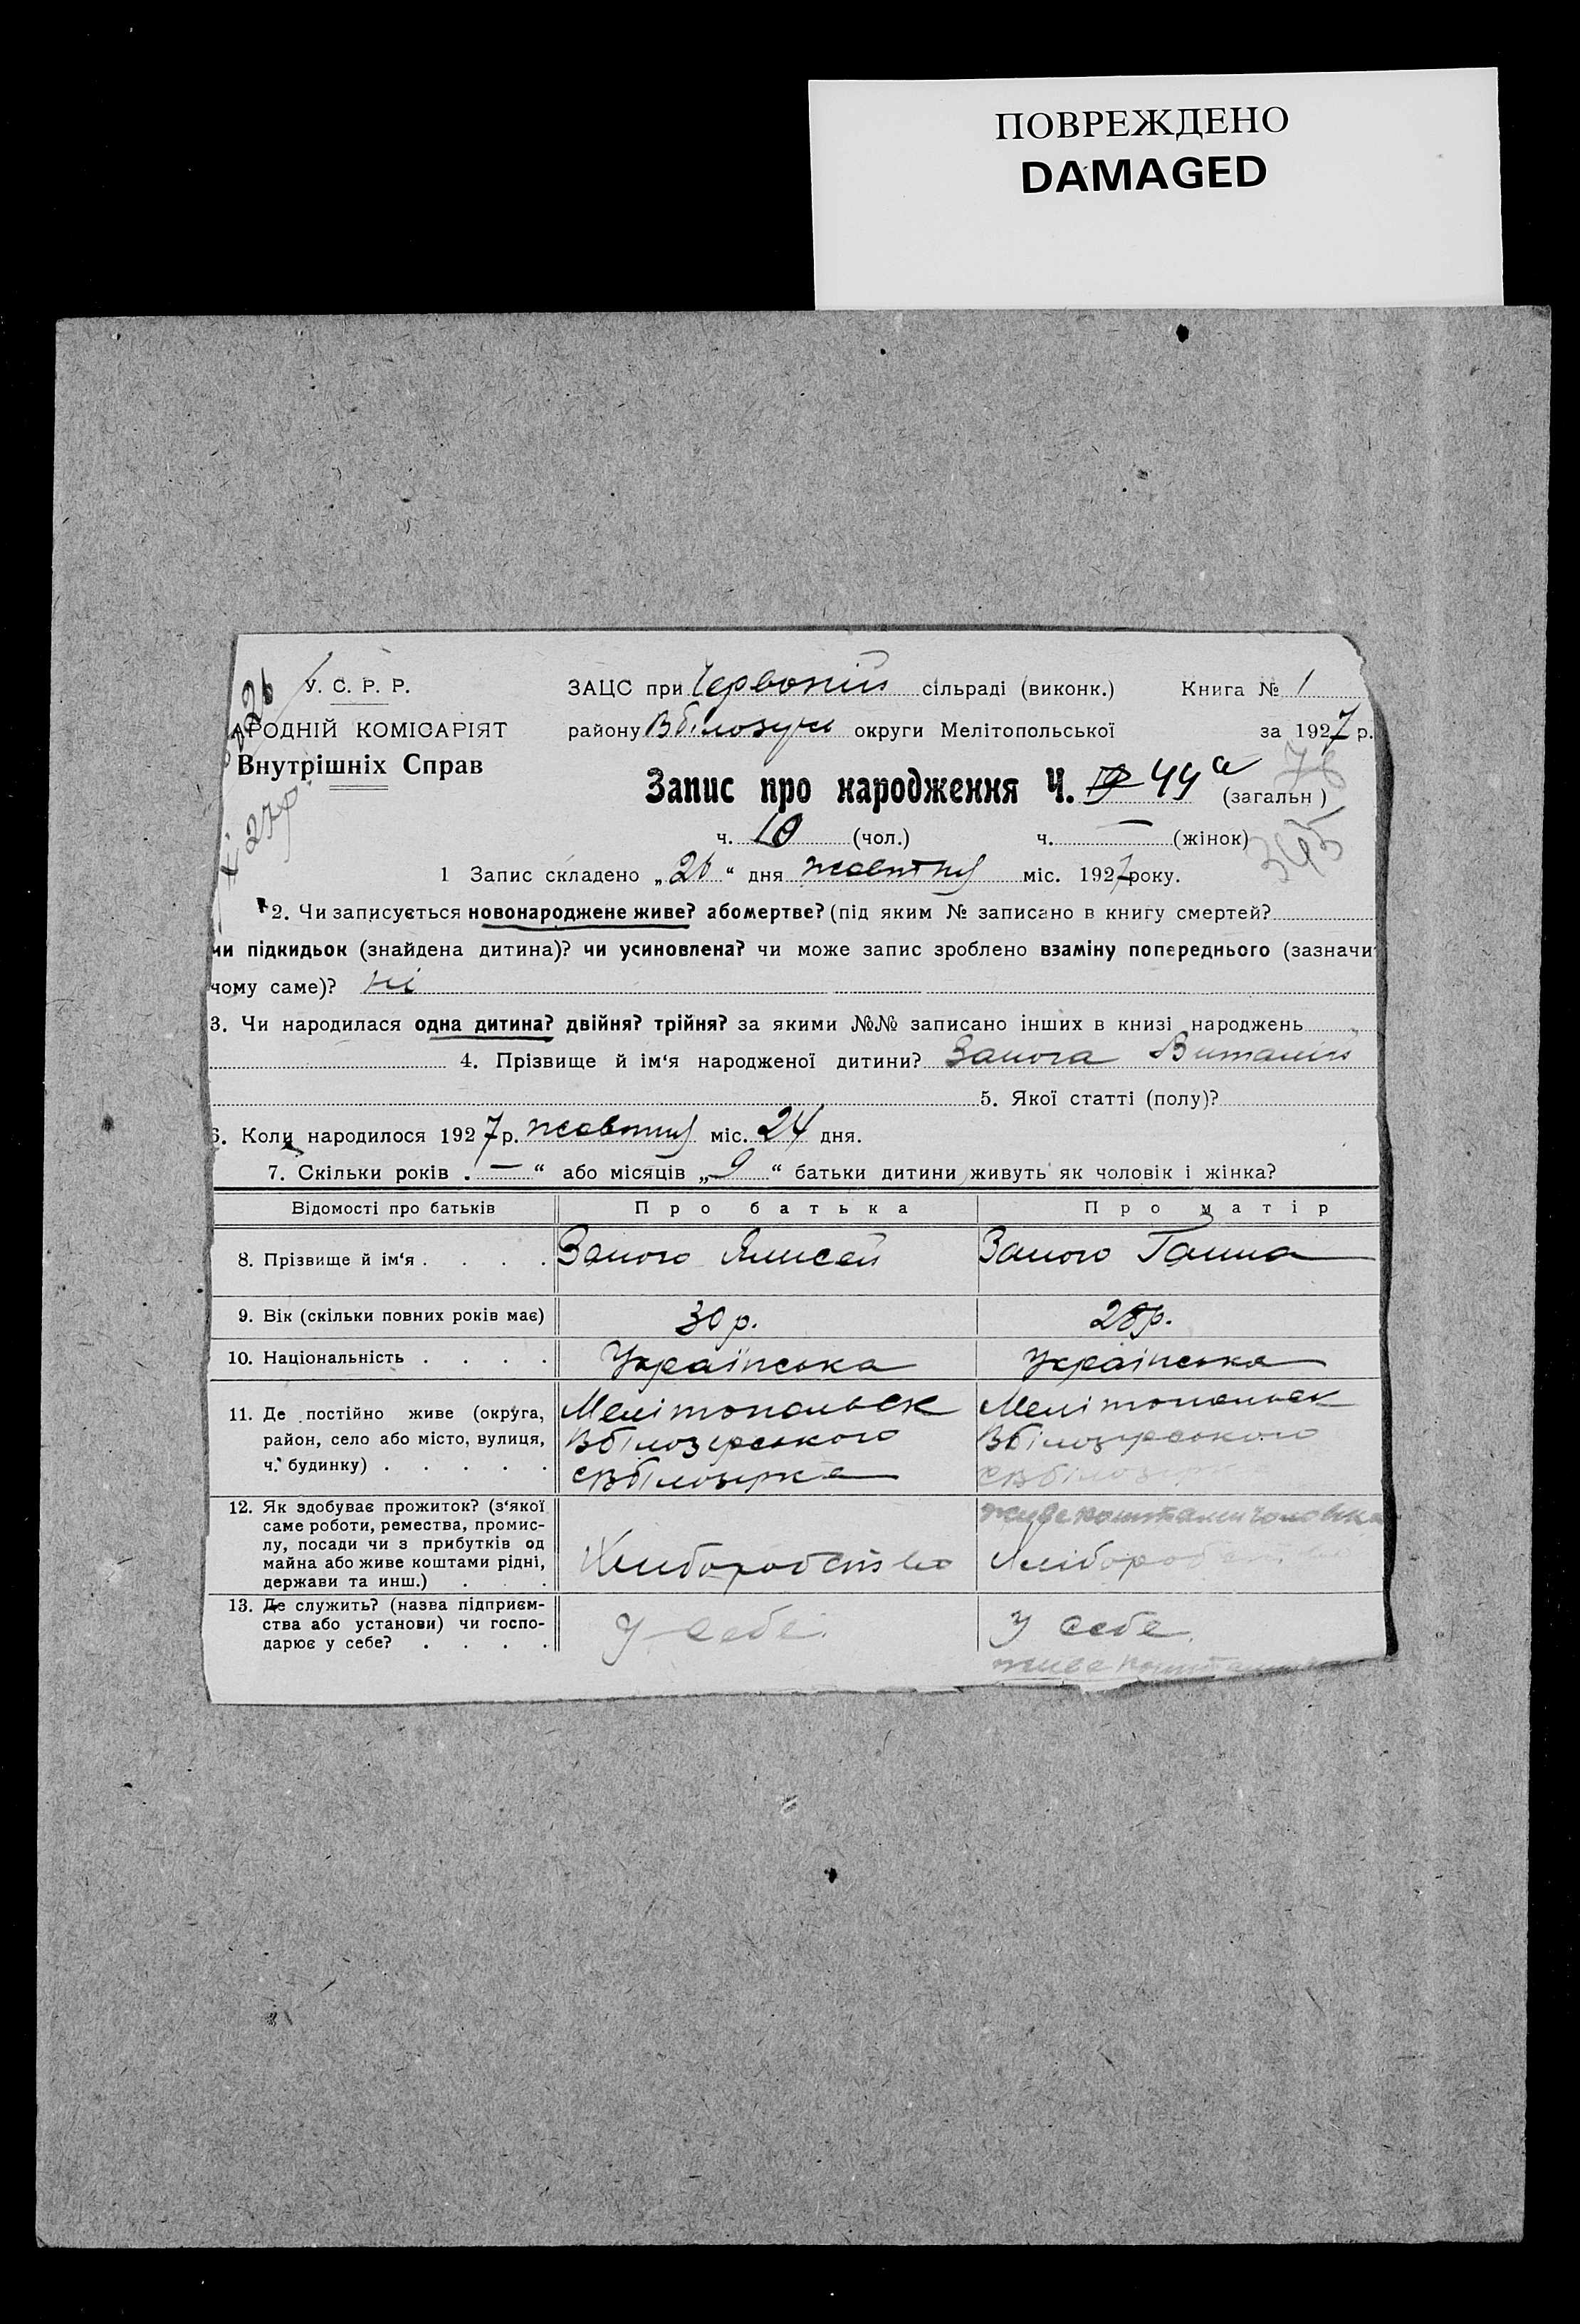 ПОВРЕЖДЕНО
DAMAGED
У. С. Р. Р.
АРОДНІЙ КОМІСАРІЯТ
Внутрішніх Справ
ЗАЦС при Червоній сільраді (виконк.) Книга № 1
району Вбілозерц округи Мелітопольської за 1927 р.
Запис про народження Ч. 44 а (загальн)
ч. 10 (чол.) ч. — (жінок)
1 Запис складено „26“ дня жовтня міс. 1927 року.
2. Чи записується новонароджене живе? або мертве? (під яким № записано в книгу смертей?
чи підкидьок (знайдена дитина)? чи усиновлена? чи може запис зроблено взаміну попереднього (зазначи
чому саме)? ні
3. Чи народилася одна дитина? двійня? трійня? за якими №№ записано інших в книзі народжень
4. Прізвище й ім‘я народженої дитини? Замога Виталій
5. Якої статті (полу)?
6. Коли народилося 1927 р. жовтня міс. 24 дня.
7. Скільки років . — “ або місяців „9“ батьки дитини живуть як чоловік і жінка?
Відомості про батьків Про батька Про матір
8. Прізвище й ім‘я . . . . Замого Ялисей Замого Ганна
9. Вік (скільки повних років має) 30 р. 28 р.
10. Національність . . . . Українська Українська
11. Де постійно живе (округа, Мелітопольск Мелітопольск
район, село або місто, вулиця, Вбілозерського Вбілозерського
ч. будинку) . . . . . с Вбілозирка с Вбілозирка
12. Як здобуває прожиток? (з‘якої живе коштами чоловіка
саме роботи, ремества, промис-
лу, посади чи з прибутків од
майна або живе коштами рідні, Хліборобство Хлібороб
держави та инш.) . . .
13. Де служить? (назва підприєм-
ства або установи) чи госпо- У себе У себе
дарює у себе? . . . .
живе коштами